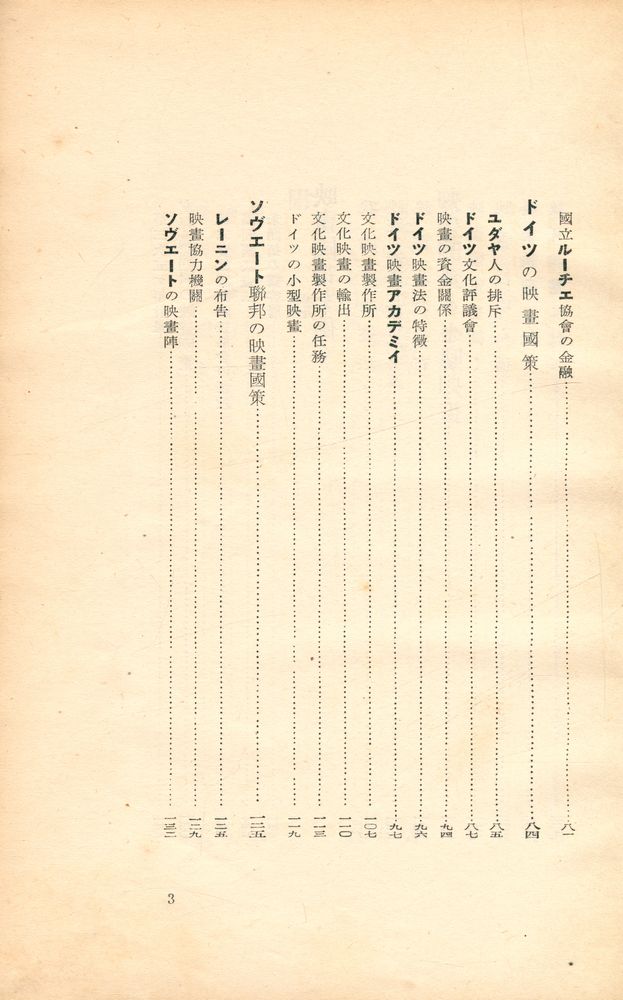 國立ルーチェ協會の金融……八一
ドイツの映畫國策……八四
ユダヤ人の排斥……八五
ドイツ文化評議會……八七
映畫の資金關係……九四
ドイツ映畫法の特徴……九六
ドイツ映畫アカデミイ……九七
文化映畫製作所……一〇七
文化映畫の輸出……一一〇
文化映畫製作所の任務……一一三
ドイツの小型映畫……一一九
ソヴエート聯邦の映畫國策……一二五
レーニンの布告……一二五
映畫協力機關……一二九
ソヴエートの映畫陣……一三二
3